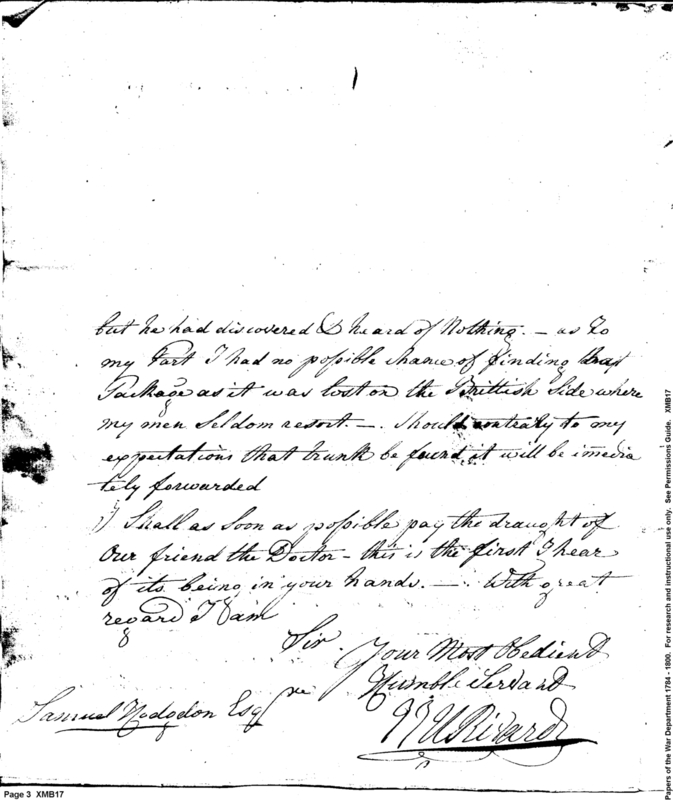 but he had discovered & heard of Nothing. — as to
my Part I had no possible chance of finding that
Package as it was lost on the Brittish Side where
my men Seldom resort. —. Should contrary to my
expectations that trunk be found it will be imedia
tely forwarded
I Shall as Soon as possible pay the draught of
Our friend the Doctor — this is the first I hear
of its being in your hands. — with great
regard I am
Sir.
Your Most Obedient
Humble Servant
Samuel Hodgdon Esqre
Rivard
Page 3 XMB17
Papers of the War Department 1784 - 1800. For research and instructional use only. See Permissions Guide. XMB17